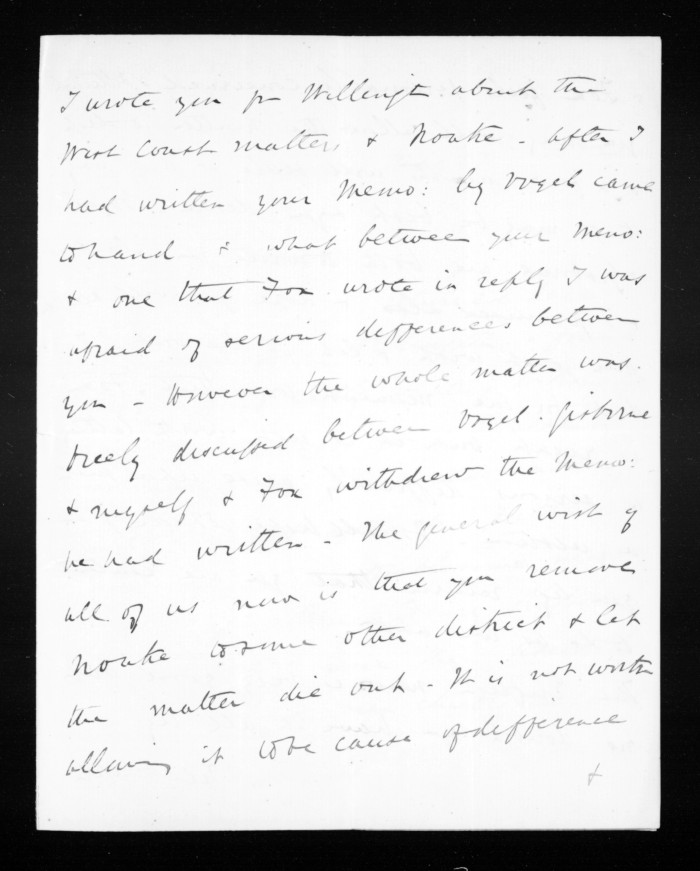 I wrote you fm Wellingtn about the
West Coast matters & Noake - after I
had written your Memo: by Vogel came
to hand & what between your Memo:
& one that Fox wrote in reply I was
afraid of serious differences between
you - However the whole matter was
freely discussed between Vogel. Gisborne
& myself & Fox withdrew the Memo:
he had written - The general wish of
all of us now is that you remove
Noake to some other district & let
the matter die out - It is not worth
allowing it to be cause of difference
&